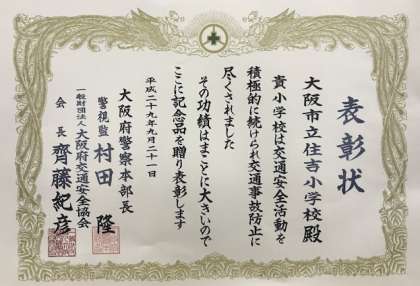 表彰状
大阪市立住吉小学校殿
貴小学校は交通安全活動を
積極的に続けられ交通事故防止に
尽くされました
その功績はまことに大きいので
ここに記念品を贈り表彰します
平成二十九年九月二十一日
大阪府警察本部長
警視監 村田 隆
一般財団法人大阪府交通安全協会
会長 齊藤紀彦